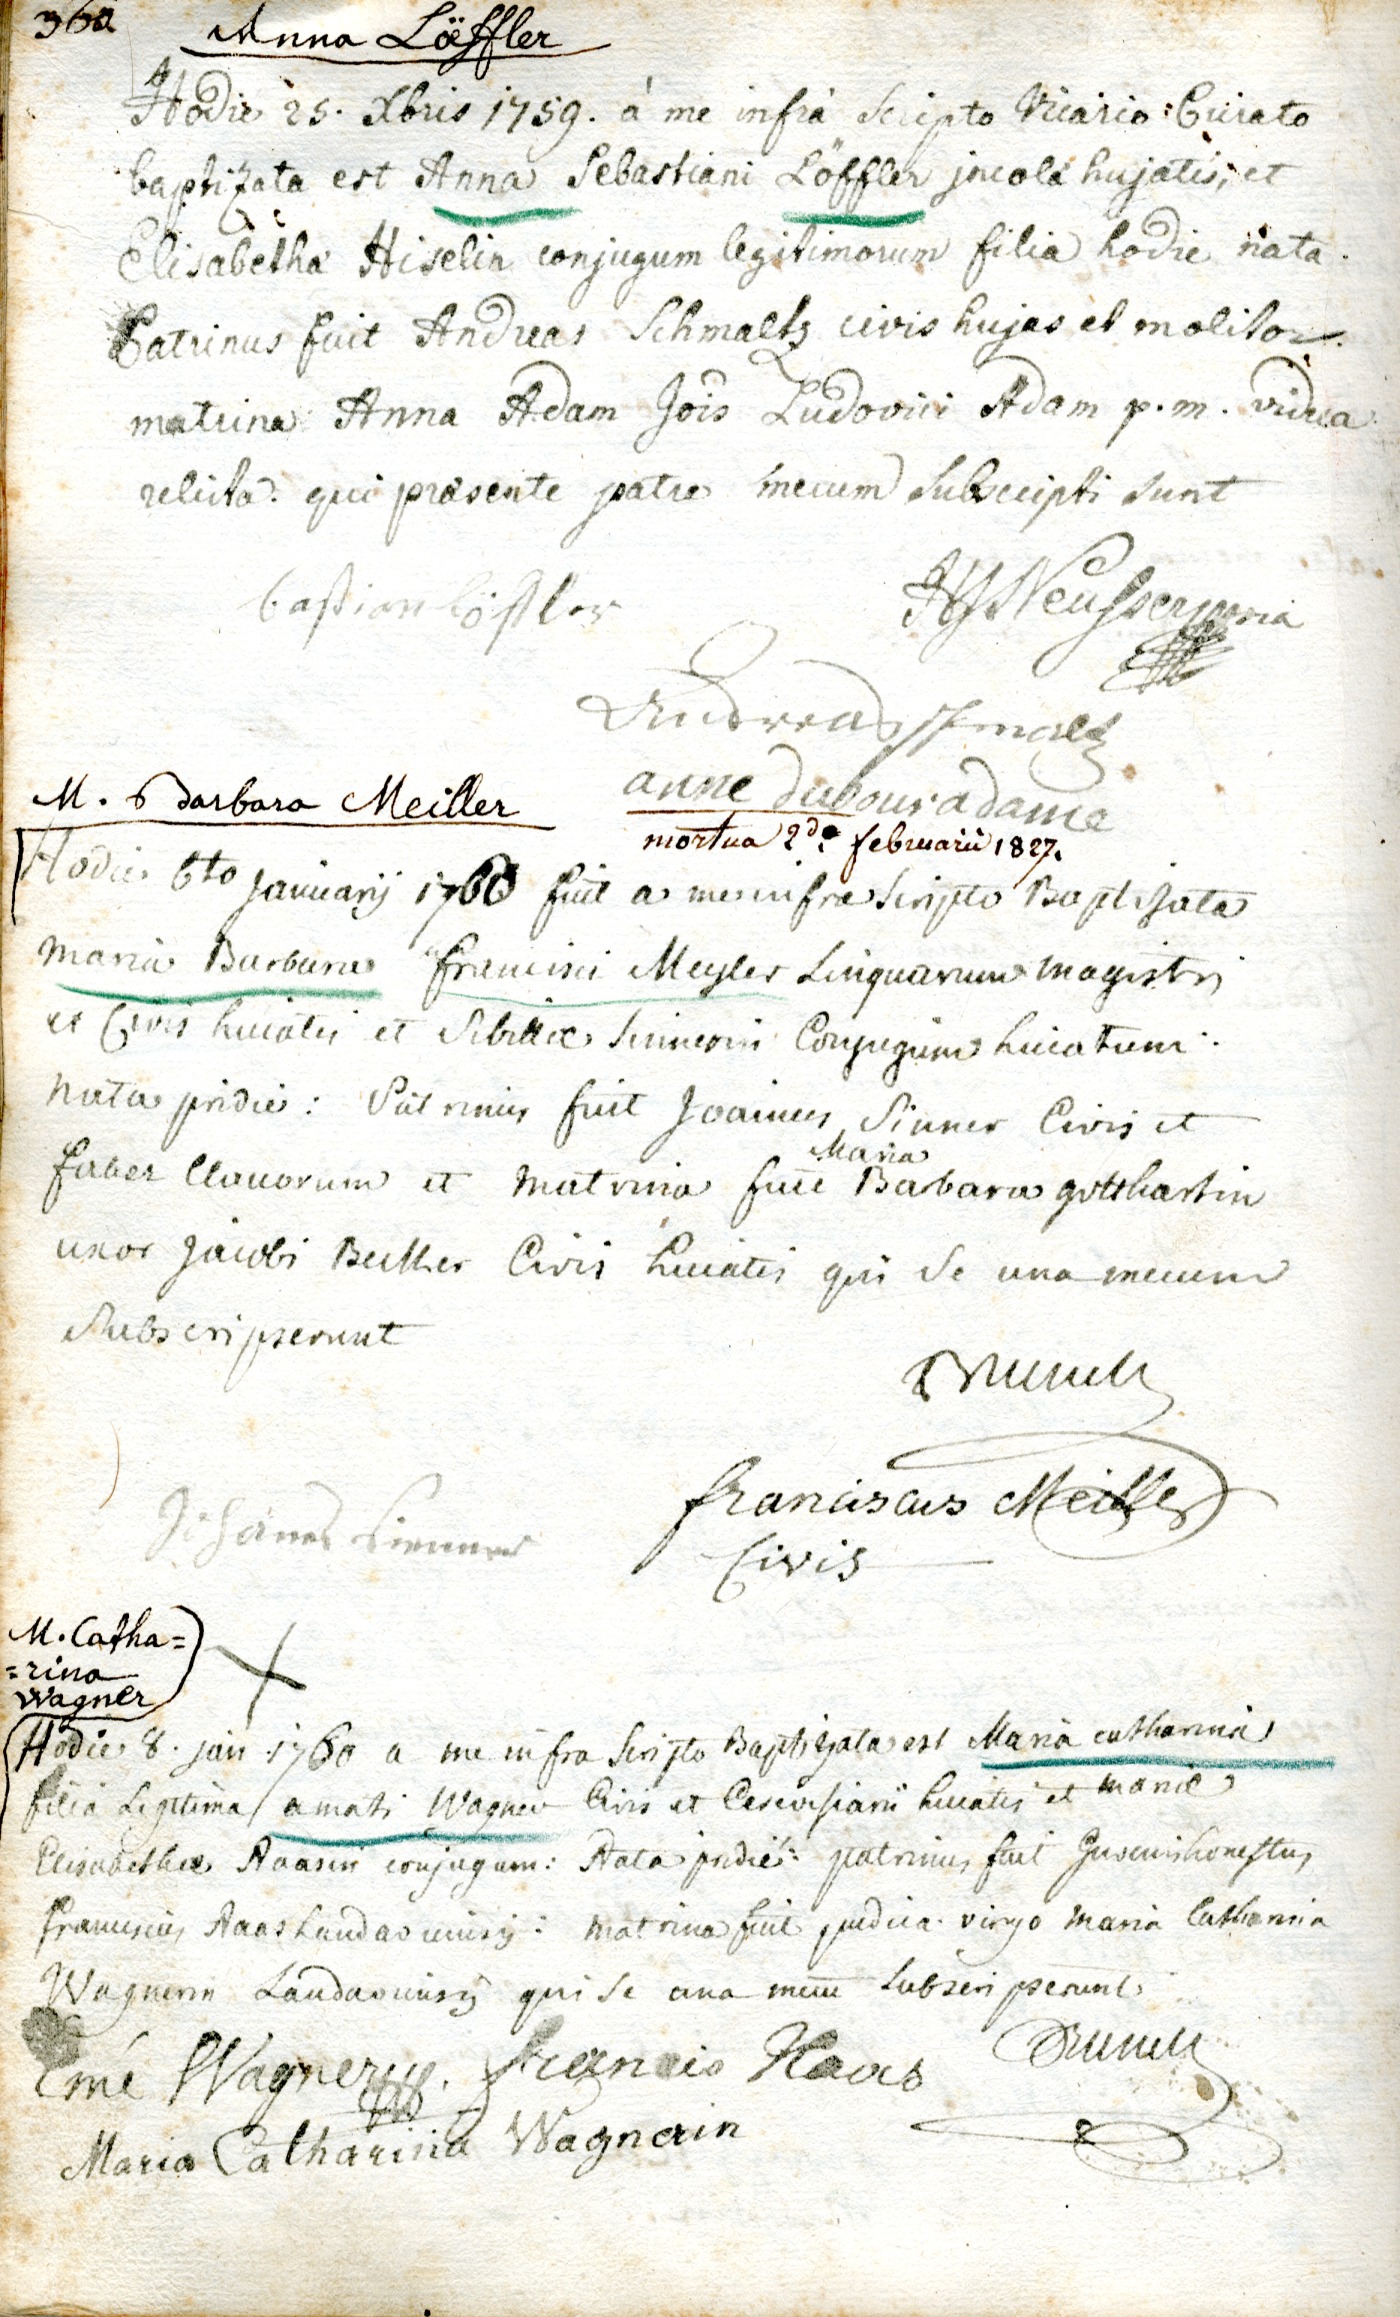 360
Anna Löffler
Hodie 25. Xbris 1759. à me infrà Scripto Vicario Curato
baptizata est Anna Sebastiani Löffler jncolà hujatis, et
Elisabetha Hiselin conjugum legitimorum filia hodie nata.
Patrinus fuit Andreas Schmaltz civis hujas et molitor.
matrina Anna Adam Jois Ludovici Adam p. m. vidua
relicta. qui præsente patre mecum subscripti sunt
bastian löffler
Andreas schmaltz
anne adame
M. Barbara Meiller
mortua 2da februarii 1827.
Hodie 6to Januarij 1760 fuit a me infra Scripto Baptizata
Maria Barbara francisci Meyler Linquarum magistri
et Civis huiatis et Sibillæ Sinnerin Conjugum huiatum.
nata pridie: Patrinus fuit Joannes Sinner Civis et
faber Clavorum et matrina fuit Maria Barbara gotthartin
uxor Jacobi Becker Civis huiatis qui se una mecum
Subscripserunt
Franciscus Meiller
Civis
Johanes Sinner
M. Catha=
=rina
Wagner
Hodie 8. jan 1760 a me infra Scripto Baptizata est Maria catharina
filia Legitima amati Wagner Civis et huiatis et mariæ
Elisabethæ Haasin conjugum: Nata pridie: patrinus fuit Juvenis honestus
franciscus Haas Landaviensis: matrina fuit pudica virgo Maria Catharina
Wagnerin Landaviensis qui se una mecum subscripserunt.
Emé Wagner François Haas
Maria Catharina Wagnerin